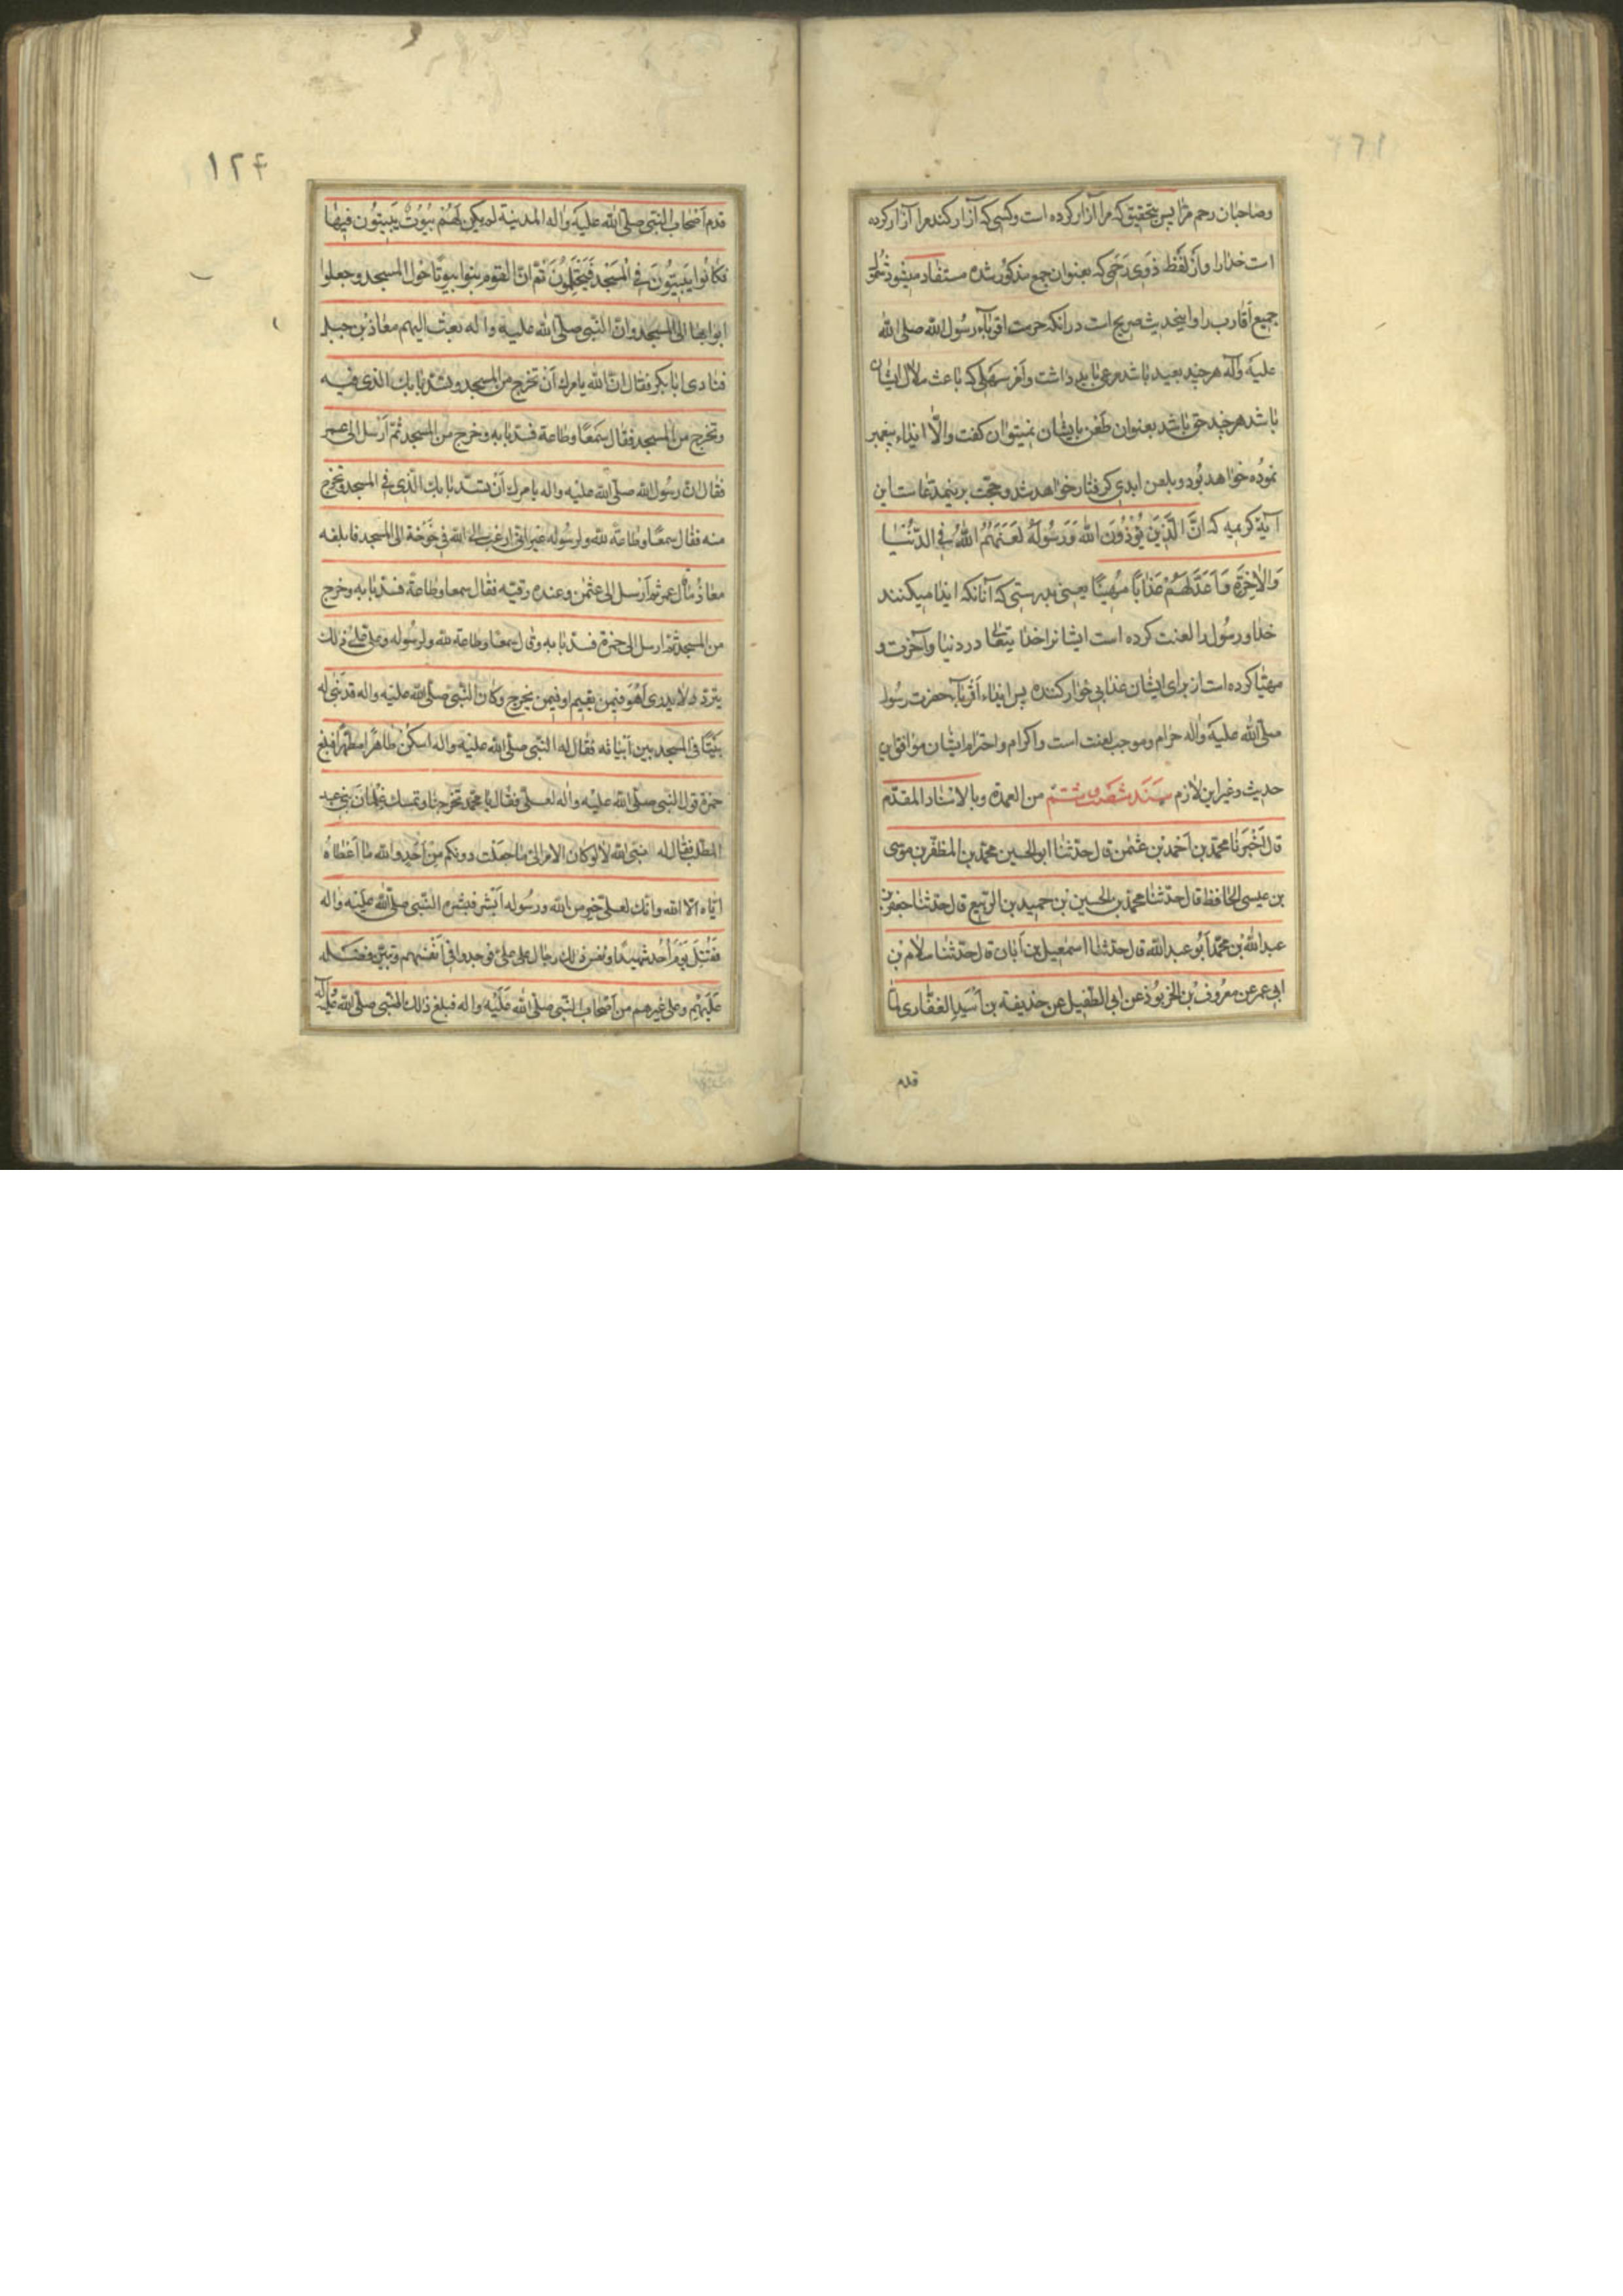 وصاحبان رحم مرا پس بتحقیق که مرا آزار کرده است وکسی که آزار کند مرا آزار کرده
است خدا را واز لفظ ذوی رحمی که بعنوان جمع مذکور شده مستفاد میشود شمول
جمیع اقارب را واینحدیث صریح است در آنکه حرمت اقرباء رسول الله صلی الله
علیه وآله هر چند بعید باشد مرعی باید داشت وامر سهلی که باعث ملال ایشان
باشد هر چند حق باشد بعنوان طعن بایشان نمیتوان گفت والا ایذاء پیغمبر
نموده خواهد بود وبلعن ابدی گرفتار خواهد شد وحجت برینمدعاست این
آیة کریمه که انّ الّذین یُؤذُونَ الله وَرَسُولَهُ لَعَنَهُمُ اللهُ فی الدُّنیا
وَالاخِرَة وَاَعَدَّ لَهُمْ عَذاباً مُهیناً یعنی بدرستی که آنانکه ایذا میکنند
خدا ورسول را لعنت کرده است ایشانرا خدا یتعالی در دنیا وآخرت و
مهیّا کرده است از برای ایشان عذابی خوار کننده پس ایذاء اقرباء حضرت رسول
صلی الله علیه واله حرام وموجب لعنت است واکرام واحترام ایشان موافق این
حدیث وغیر این لازم سند شصت وشتم من العمدة وبالاسناد المقدّم
قال اَخْبَرَنا محمّد بن اَحْمد بن عثمن قال حدّثنا ابوالحسین محمّد بن المظفّر بن موسی
بن عیسی الحافظ قال حدّثنا محمّد بن الحسین بن حمید بن الرّبیع قال حدّثنا جعفر بن
عبد الله بن محمّد اَبُو عبد الله قال حدثنا اسمعیل بن اَبان قال حدّثنا سلام بن
ابی عمر عن معرُوف بن الخرّبوُذ عن ابی الطّفیل عن حذیفة بن اُسَید الغفّاری لمّا
قدم
۱۲۴
قدم اَصحاب النّبی صلّی الله علیه واله المدینة لم یکن لَهُمْ بُیُوتٌ یَبیتُون فیها
فَکانُوا یَبیتُونَ فی الْمَسْجد فَیَحْتَلِمُونَ ثمّ انّ القوم بنوا بیوتًا حَول المسجد وجعلوا
ابوابها الی المسجد وانّ النّبی صلّی الله علیه واله بعث الیهم معاذ بن جبل
فنادی ابابکر فقال انّ الله یامرك اَنْ تخرج من المسجد وتسُدّ بابك الذی فیه
وتخرج من المسجد فقال سَمعًا وطاعة فسدّ بابه وخرج من المسجد ثمّ اَرْسل الی عمر
فقال انّ رسُول الله صلّی الله علیه واله یامرك اَنْ تسدّ بابك الّذی فی المسجد وتخرج
منه فقال سمعًا وطاعة لله ولرسُوله غیر انّی ارغب الی الله فی خَوْخة الی المسجد فابلغه
معاذُ ما قال عمر ثم اَرْسل الی عثمن وعنده رقیّه فقال سمعا وطاعة فسدّ بابه وخرج
من المسجد ثمّ ارسل الی حمزة فسدّ بابه وقال سمعا وطاعة لله ولرسُوله وعلی علی ذلك
یتردّد لا یدری اَهُوَ فیمن یقیم او فیمن یخرج وکان النّبی صلّی الله علیه واله قد بَنی له
بَیْتًا فی المسجد بین اَبْیاته فقال له النّبی صلّی الله علیه واله اسکُن طاهرًا مطهّرًا فبلغ
حمزة قول النّبی صلّی الله علیه واله لعلیّ فقال یا محمّد تخرجنا وتمسك غلمانَ بنی عبد
المطّلب فقال له نبیّ الله لا لو کان الامر الیّ ما جعلت دونکم مِن اَحَدٍ والله ما اَعْطاهُ
ایّاه الّا الله وانّك لعلی خیر من الله ورسُوله اَبْشر فبشره النّبی صلّی الله علیه واله
فَقُتِلَ یَوْمَ اُحُد شهیدًا ونفس ذلك رجال علی علیّ فوجدوا فی اَنْفسهم وتبیّن فضله
عَلَیهِم وعلی غیرهم من اَصحاب النّبی صلّی الله عَلَیْه واله فبلغ ذلك النّبی صلّی الله علیه واله